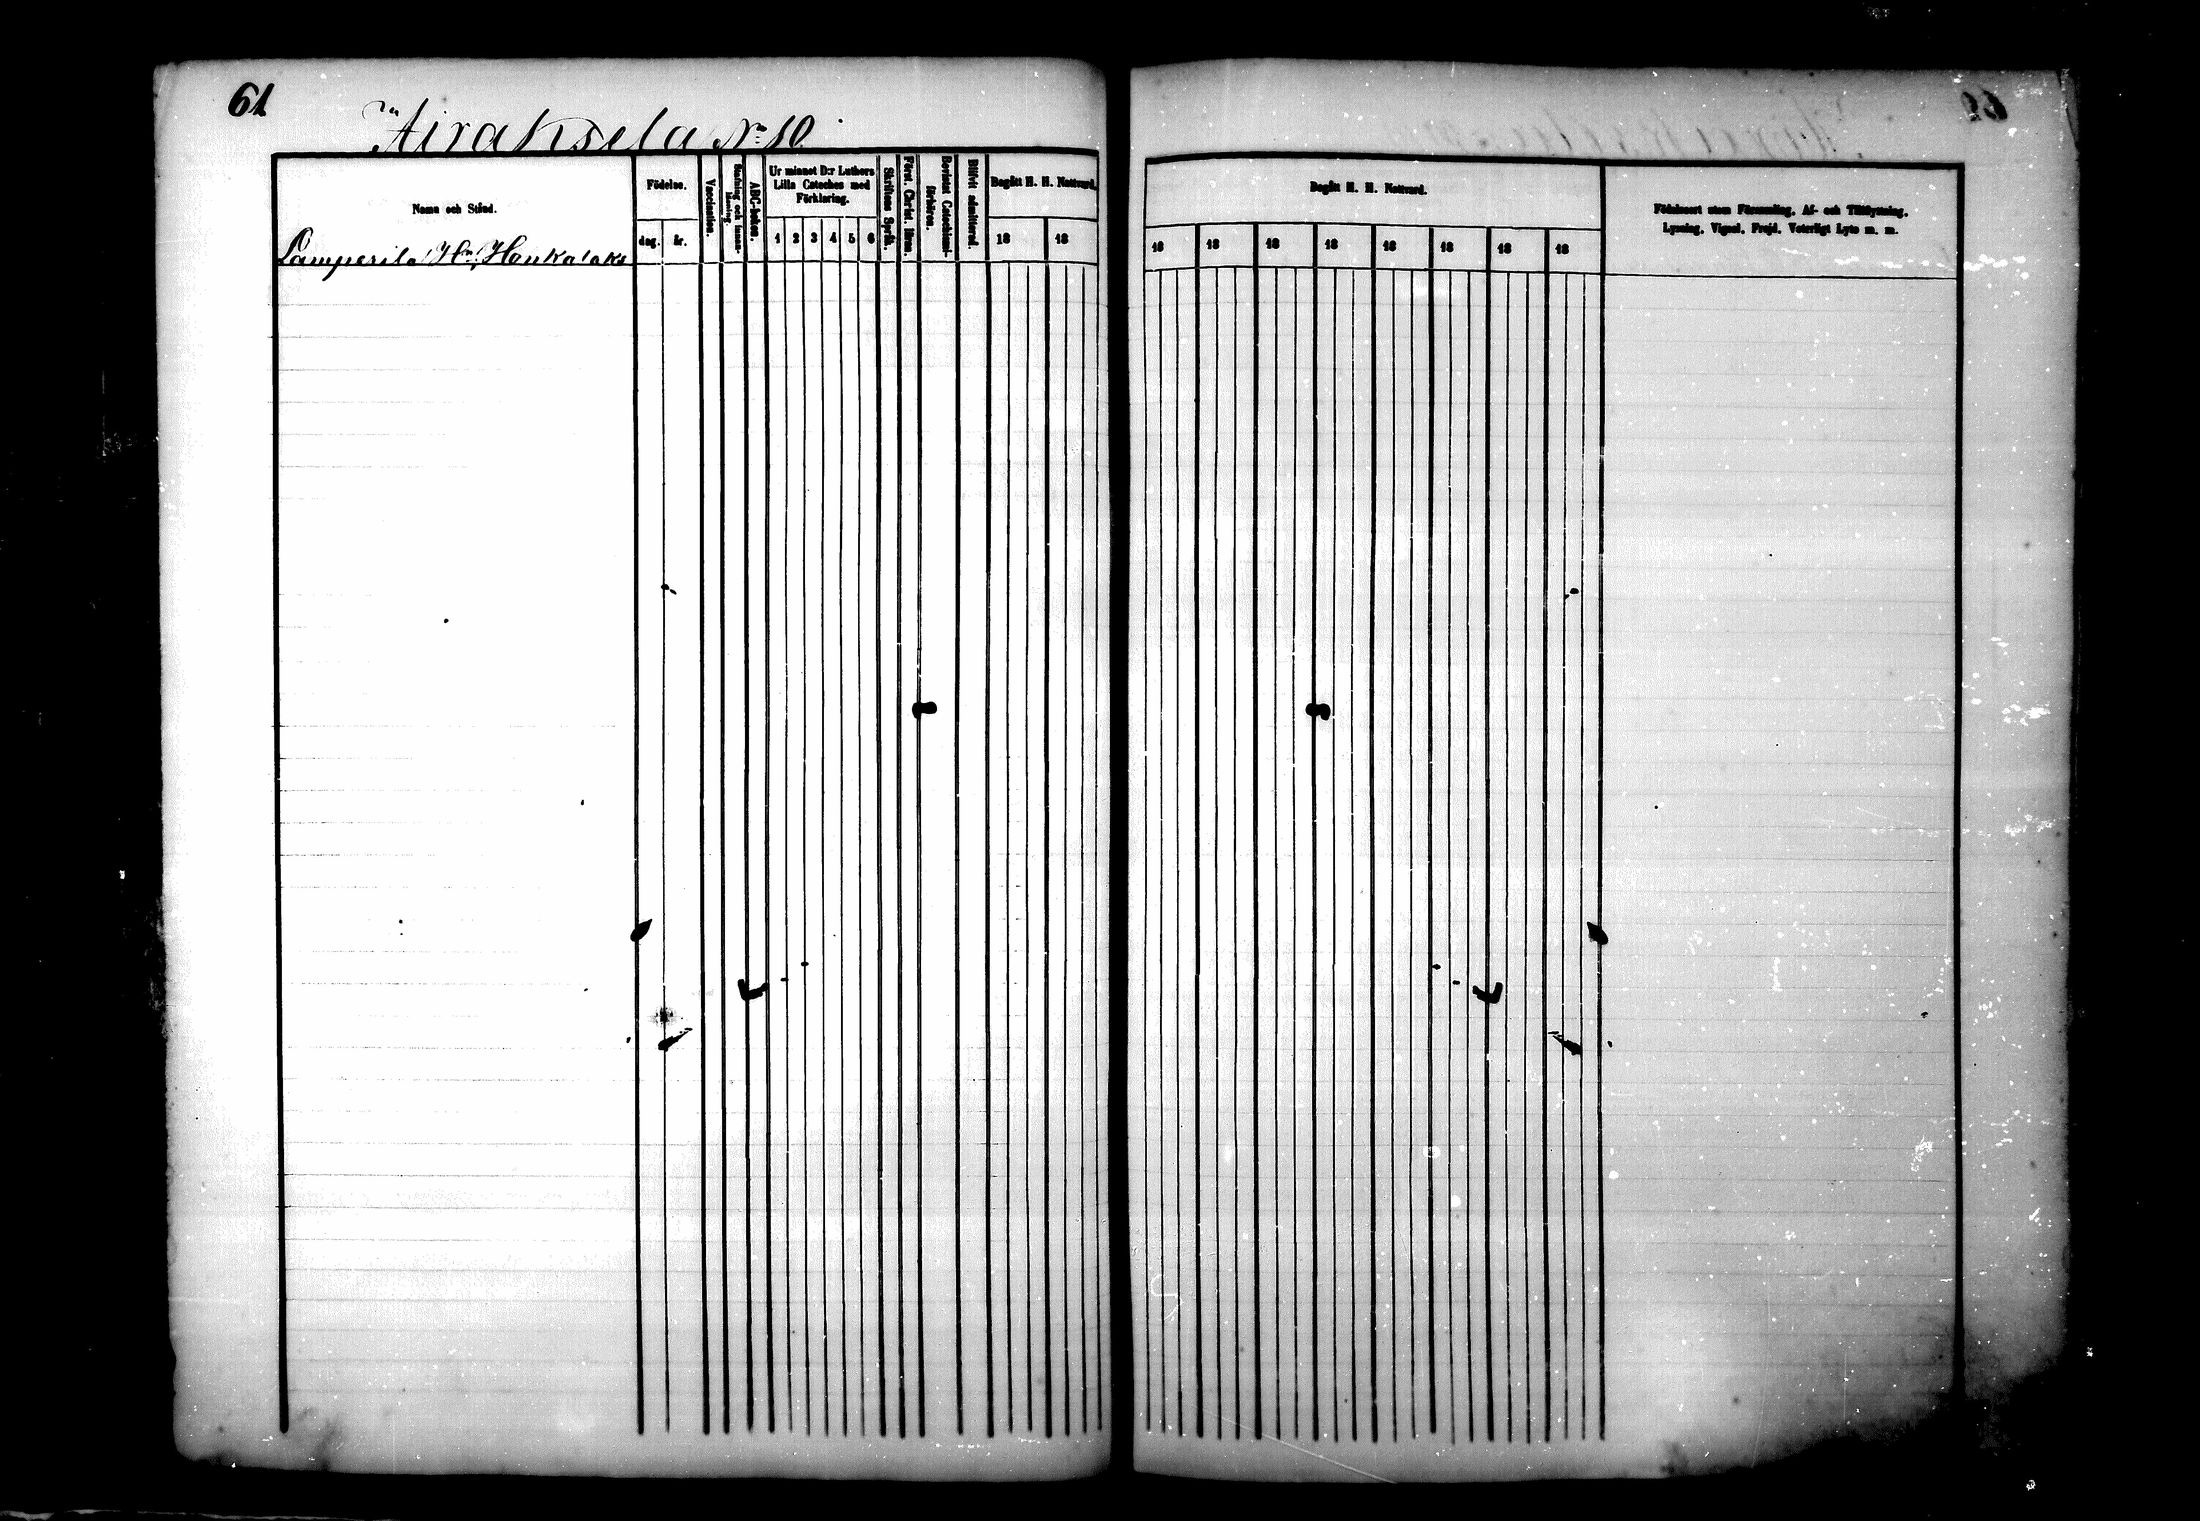 61
Airaksela No 10.
Namn och Stånd.
Födelse.
dag.
år.
Vaccination.
Stafning och Innanläsning.
ABC-boken.
Ur minnet D:r Luthers
Lilla Cateches med
Förklaring.
1 2 3 4 5 6
Skriftens Språk.
Först. Christ. Huru.
Bevistat Catechismi-
förhören.
Blifvit admitterad.
Begått H. H. Nattvard.
18 18
Lamperila Hm, Haukalaks
Begått H. H. Nattvard.
18 18 18 18 18 18 18 18
Födelseort utom Församling, Af- och Tillflyttning,
Lysning, Vigsel, Frejd, Veterligt Lyte m. m.
62